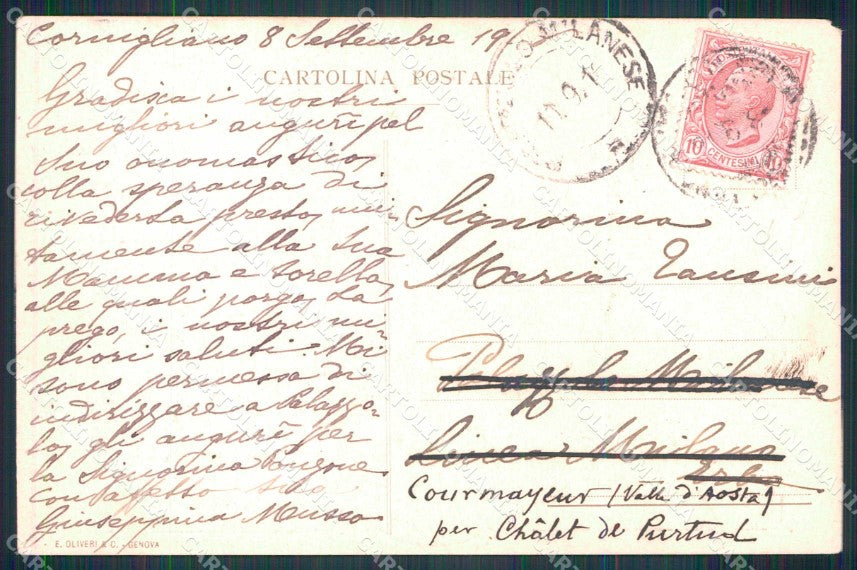 Cornigliano 8 Settembre 19
CARTOLINA POSTALE
Gradisca i nostri
migliori augurî pel
Suo onomastico,
colla speranza di
rivederla presto, uni-
tamente alla Sua
Mamma e Sorella,
alle quali porgo, La
prego, i nostri mi-
gliori saluti. Mi
sono permessa di
indirizzare a Palazzo-
lo, gli augurî per
la Signorina
con affetto Sua
Giuseppina Musso
E. OLIVERI & C. - GENOVA
MILANESE
11.9.1
10 CENTESIMI 10
Signorina
Maria Tansini
Palazzolo Milanese
Linea Milano
Courmayeur (Valle d'Aosta)
per Châlet de Purtud
CARTOLINOMANIA